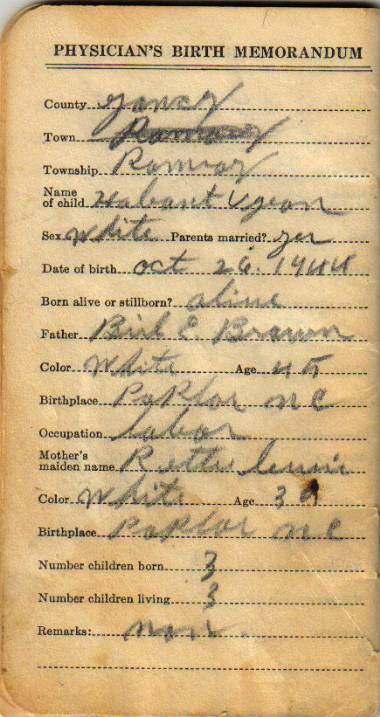 PHYSICIAN'S BIRTH MEMORANDUM
County Yancy
Town
Township Ramsay
Name
of child
Sex White Parents married? yes
Date of birth oct 26. 1944
Born alive or stillborn? alive
Father Birl E Brown
Color White Age 45
Birthplace Poplar NC
Occupation labor
Mother's
maiden name
Color White Age 39
Birthplace Poplar NC
Number children born 3
Number children living 3
Remarks: non